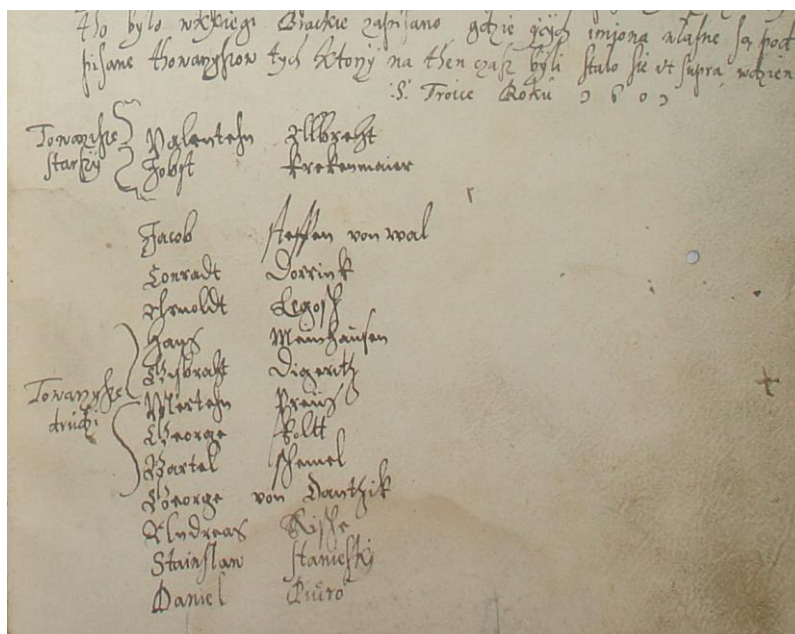 tho bylo w księgi Brackie zapisano gdzie ich imiona własne są pod
pisane Thowarzyszow tych ktorzy na then czasz byli stalo sie ut supra w dzien
:S: Troice Roku 1601
Towarzysze Valentehn Ellbrecht
starszy Jobst Krekenmaier
Jacob steffen von wal
Conradt Dorrink
Arnoldt Legosch
Hans Meinhausen
Gisbraht Digeritz
Towarzysze Mertehn Preuss
drudzi George Koltt
Bartel schemel
George von Dantzik
Andreas Rische
Stainslaw stanieski
Daniel